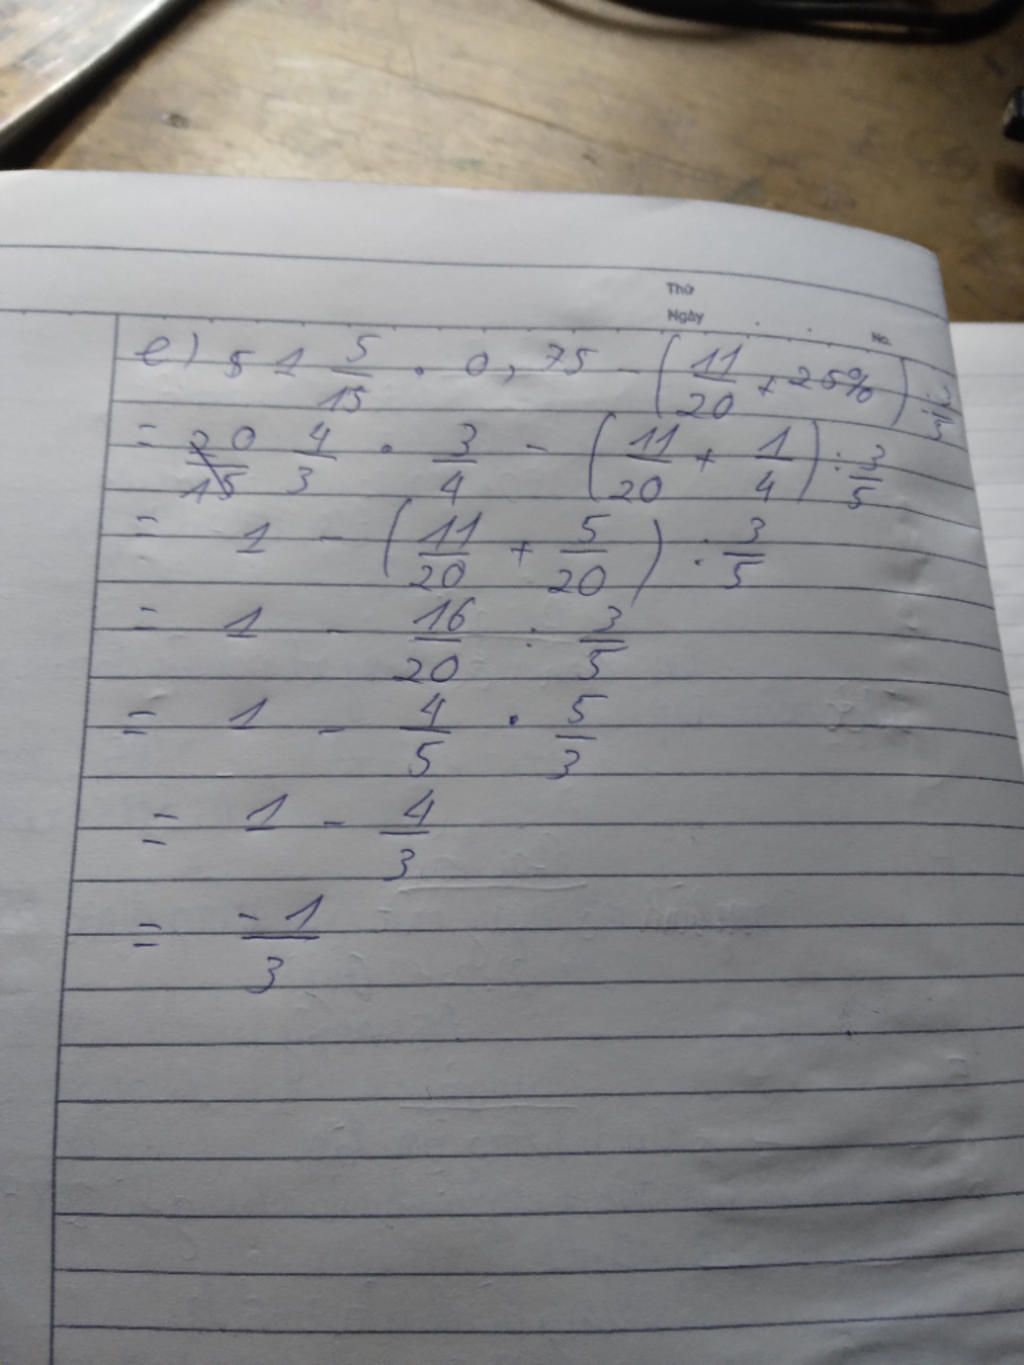 Thứ
Ngày . . No.
e) 1 5/15 . 0,75 - (11/20 + 25%) : 3/5
= 4/3 . 3/4 - (11/20 + 1/4) : 3/5
= 1 - (11/20 + 5/20) : 3/5
= 1 - 16/20 : 3/5
= 1 - 4/5 . 5/3
= 1 - 4/3
= -1/3